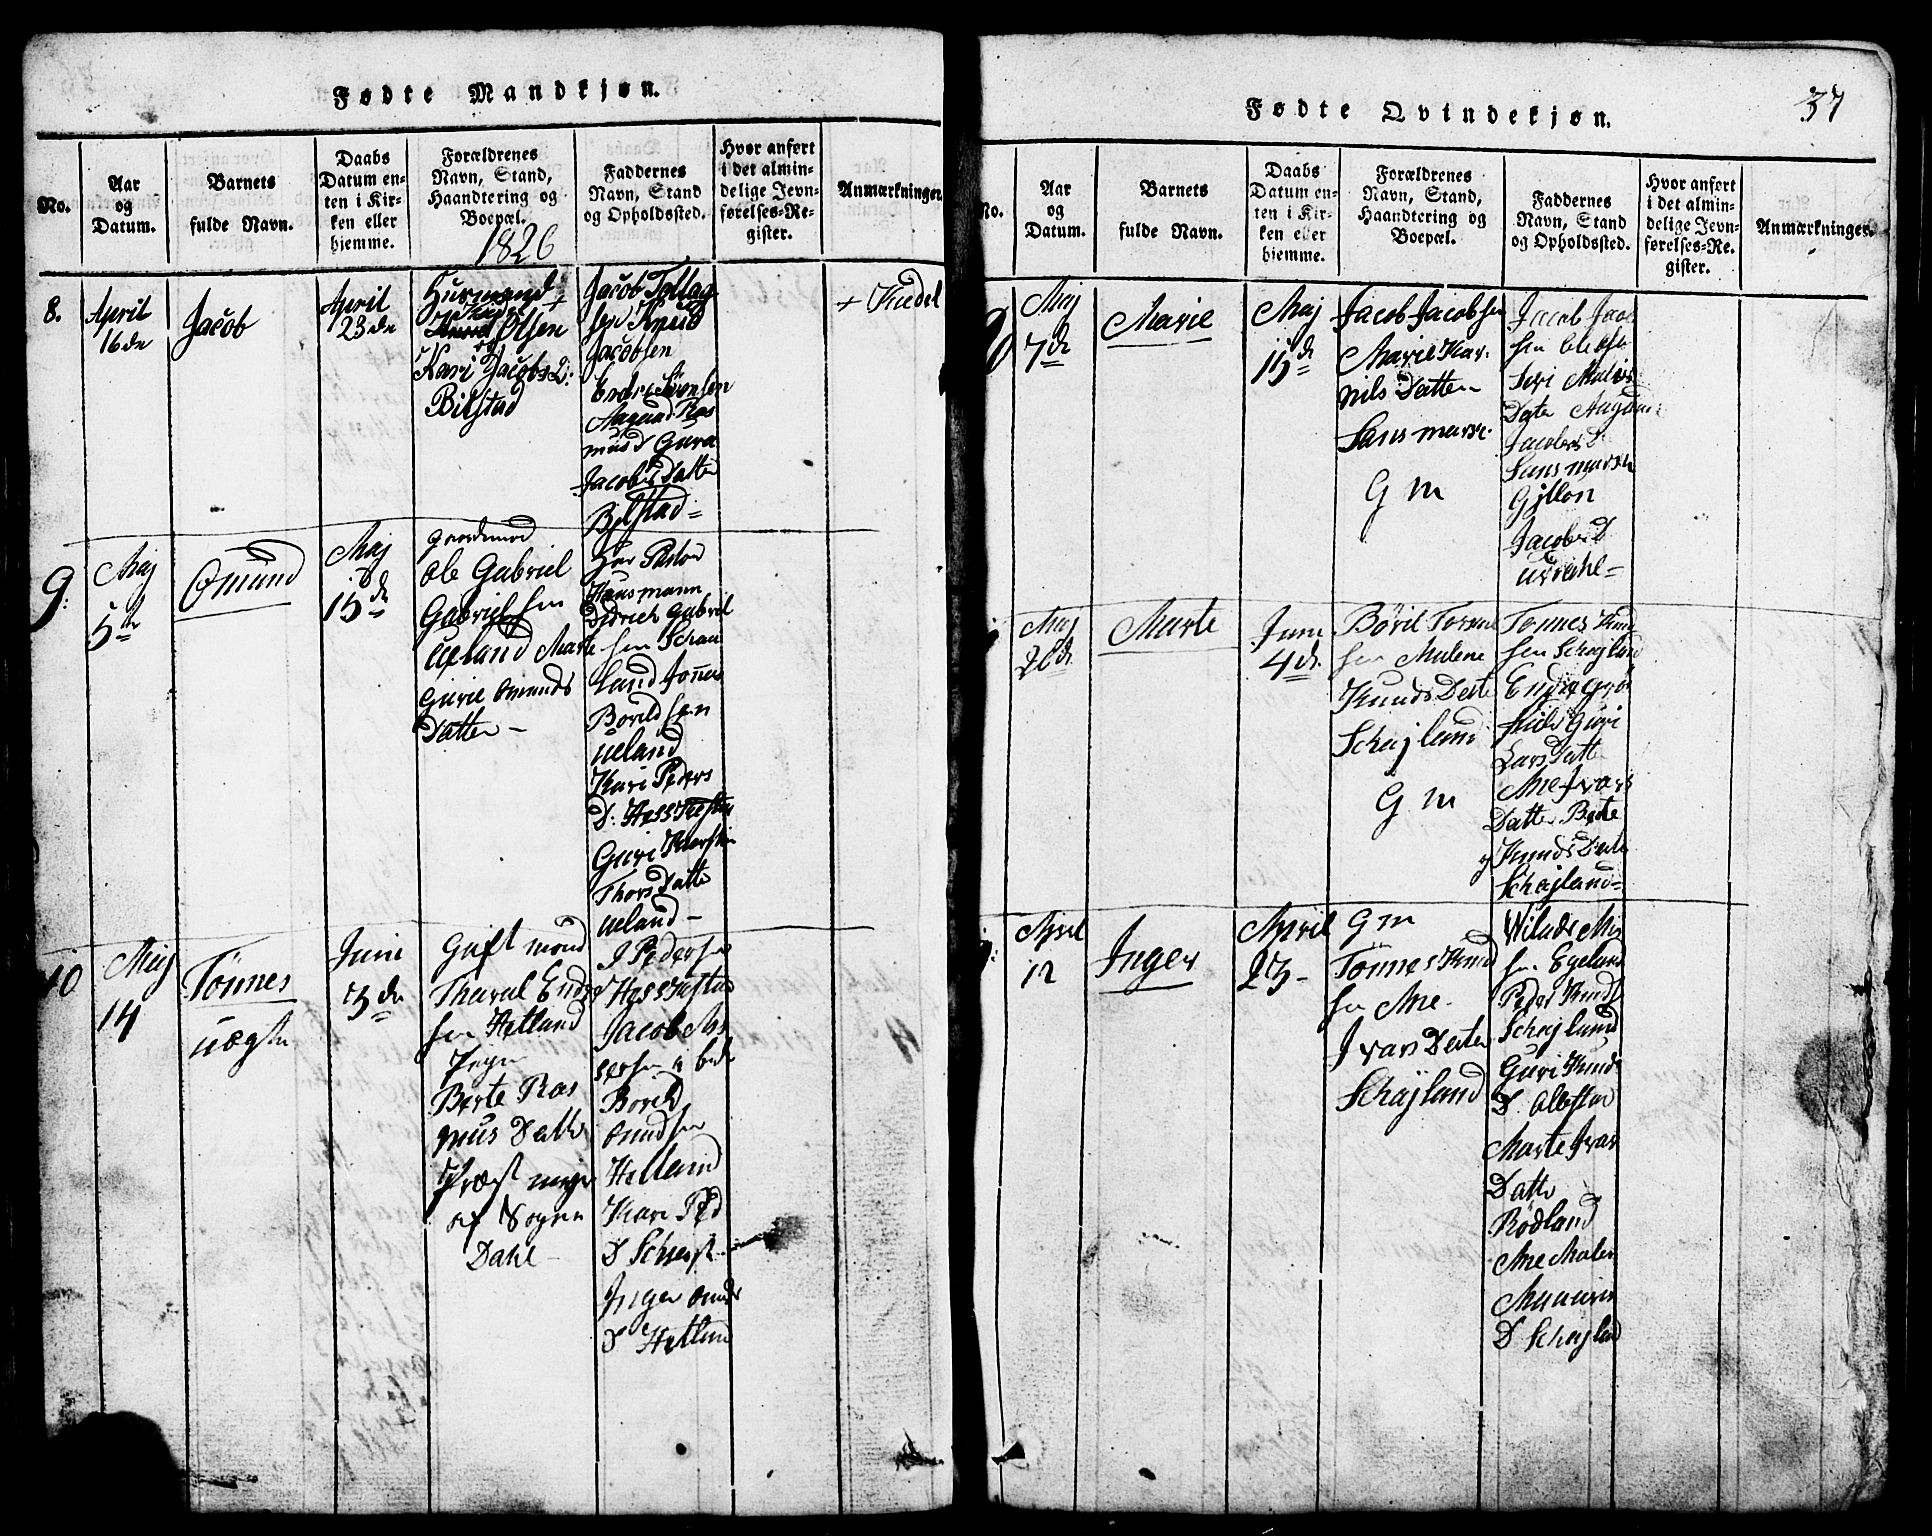 Fødte Mandkjøn.
No.
Aar
og
Datum.
Barnets
fulde Navn.
Daabs
Datum en-
ten i Kir-
ken eller
hjemme.
Forældrenes
Navn, Stand,
Haandtering og
Boepæl.
1826
Faddernes
Navn, Stand
og Opholdssted.
Hvor anført
i det almin-
delige Jevn-
førelses-Re-
gister.
Anmærkninger.
8.
April
16 de
Jacob
April
23 de
Huusmand +
Olsen
og
Kari Jacobs D:
Bilstad
Jacob Tollag
sen Knud
Jacobsen
Endre Sörensen
Aagaard Ras
mus D Gura
Jacobs Datter
Bilstad =
+ Kudel
9:
Maj
5te
Omund
Maj
15 de
Gaardmand
Ole Gabriel
Gabrielsen
Ueland Marte
Gurie Omunds
Datter -
Her Pastor
Hausmann
Didrich Gabriel
sen Schau
land Jonas
Borildsen
Ueland
Kari Peders
D: Hesskestad
Guri Kiersti
Thors Datter
Ueland -
10
Maj
14
Tönnes
uægte
Juni
3 de
Gift mand
Tharal Endre
sen Hetland
Pige
Berte Ras
mus Datter
Præst
af Sogne
Dahl -
J Pedersen
Hesskestad
Jacob As
sersen
Borild
Omundsen
Hetland
Kari Ped
D
Inger Omunds
D Hetland
Fødte Qvindekjøn.
37
No.
Aar
og
Datum.
Barnets
fulde Navn.
Daabs
Datum en-
ten i Kir-
ken eller
hjemme.
Forældrenes
Navn, Stand,
Haandtering og
Boepæl.
Faddernes
Navn, Stand
og Opholdssted.
Hvor anført
i det almin-
delige Jevn-
førelses-Re-
gister.
Anmærkninger.
Maj
7 de
Marie
Maj
15 de
Jacob Jacobsen
Marie Kar
nils Datter
Sansmark
G M
Jacob Jacob
sen
Siri Malies
Dater
Jacobs D
Sansmark
Gyllon
Jacobs D
Maj
26 de
Marte
Juni
4 de
Böril Torsen
sen Malene
Knuds Datter
Schejland
G M
Tönnes Knud
sen Schejland
Endre
Guri
Lars Datter
Ane Ivars
Datter Berte
Knuds Datter
Schejland =
April
12
Inger
April
23 -
G M
Tönnes Knud
sen Ane
Ivars Datter
Schejland
Wilads
sen Egeland
Peder Knuds
Schejland
Guri Knuds
D. Olestad
Marte Ivars
Datter
Rödland
Ane Malen
D Schejland